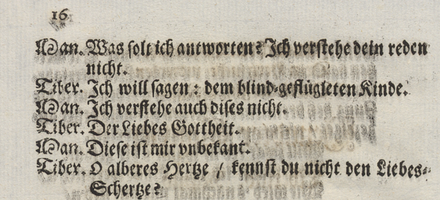 16.
Man. Was solt ich antworten? Ich verstehe dein reden
nicht.
Tiber. Ich will sagen: dem blind-geflügleten Kinde.
Man. Ich verstehe auch dises nicht.
Tiber. Der Liebes Gottheit.
Man. Diese ist mir vnbekant.
Tiber. O alberes Hertze / kennst du nicht den Liebes-
Schertze?